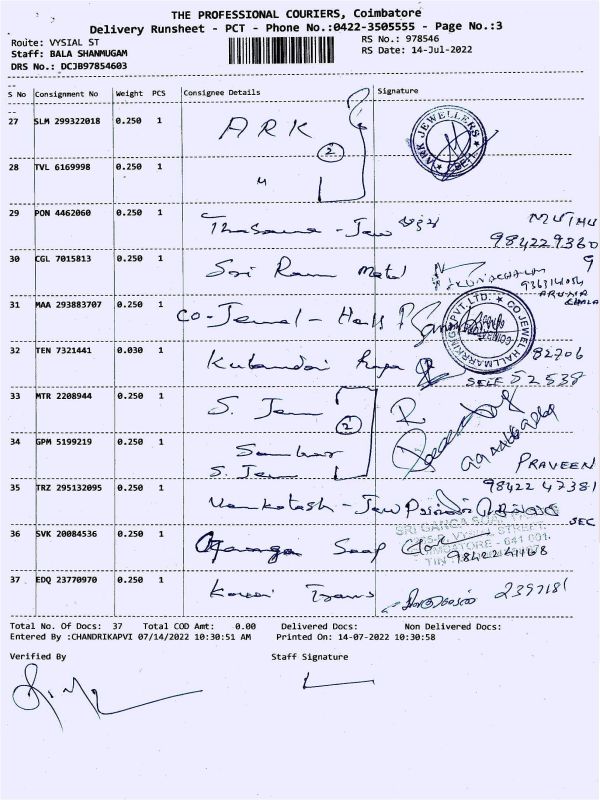 THE PROFESSIONAL COURIERS, Coimbatore
Delivery Runsheet - PCT - Phone No.:0422-3505555 - Page No.:3
Route: VYSIAL ST
RS No.: 978546
Staff: BALA SHANMUGAM
RS Date: 14-Jul-2022
DRS No.: DCJB97854603
S No Consignment No Weight PCS Consignee Details Signature
27 SLM 299322018 0.250 1 ARK ARK JEWELLERS
2
28 TVL 6169998 0.250 1 "
29 PON 4462060 0.250 1 MUTHU
984229360
9
30 CGL 7015813 0.250 1 Sri Ram Metal
31 MAA 293883707 0.250 1 Co-Jewel-Hall
32 TEN 7321441 0.030 1 82706
SELF 52538
33 MTR 2208944 0.250 1 S. Jem
2
34 GPM 5199219 0.250 1 S. Jem PRAVEEN
35 TRZ 295132095 0.250 1 Venkatesh - Jew 98422 47381
SEC
36 SVK 20084536 0.250 1 Ganga Soap
SRI GANGA SOAP
VYSIAL STREET
COIMBATORE - 641 001.
37 EDQ 23770970 0.250 1 Kovai Trans
Total No. Of Docs: 37 Total COD Amt: 0.00 Delivered Docs: Non Delivered Docs:
Entered By :CHANDRIKAPVI 07/14/2022 10:30:51 AM Printed On: 14-07-2022 10:30:58
Verified By Staff Signature